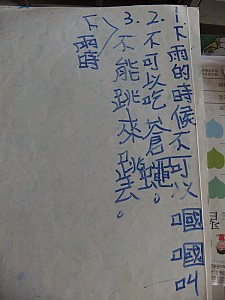 1下雨的時候不可以嘓嘓叫
2.不可以吃蒼蠅。
3.不能跳來跳去。
下雨時